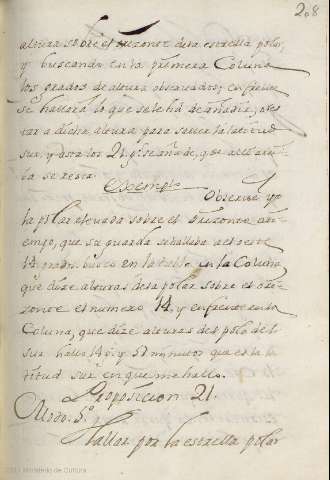 208
altura sobre el orizonte desta estrella polar,
y buscando en la primera Coluna
los grados de altura observados; en frente
se hallara lo que se le há de añadir, o res
tar a dicha altura para saver la latitud
sur, y asta los 21 g.s se añade, y de alli arri-
ba se resta.
Exemplo
Observe yo
la polar elevada sobre el orizonte
tiempo, que su guarda se hallaba al oeste
14 grados. busco en la tabla en la Coluna
que dize alturas desta polar sobre el ori-
zonte el numero 14, y enfrente en la
Coluna, que dize alturas del polo del
sur hallo 14 g.s y 57 minutos que es la la
titud sur en que me hallo.
Proposicion 21.
Modo. 5.º
Hallar por la estrella polar
Ministerio de Cultura